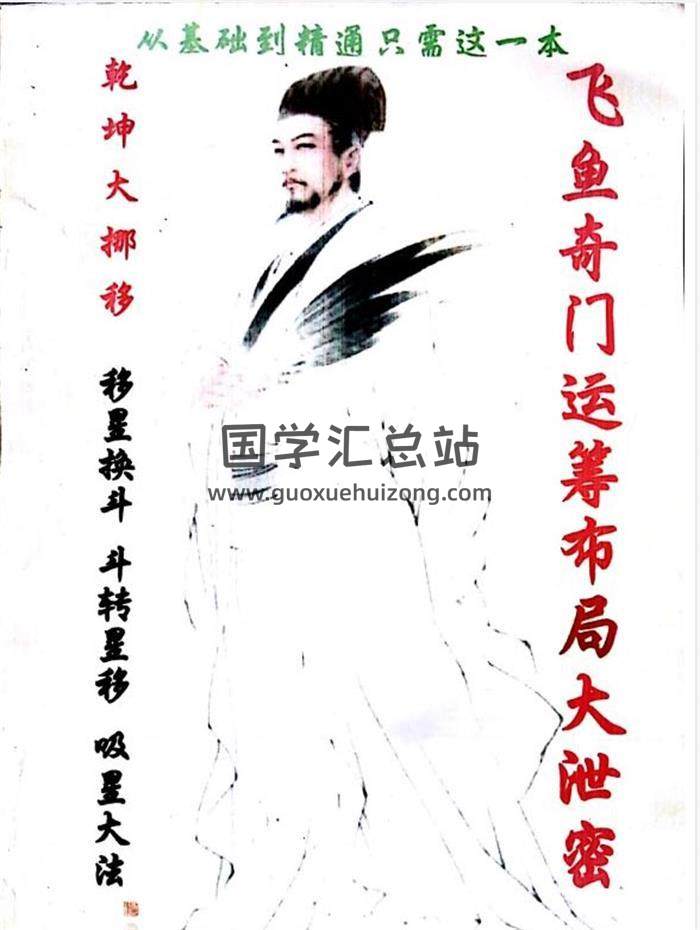 从基础到精通只需这一本
飞鱼奇门运筹布局大泄密
乾坤大挪移
移星换斗 斗转星移 吸星大法
国学汇总站
www.guoxuehuizong.com